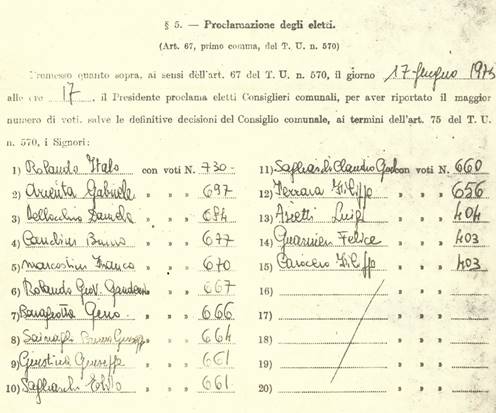 § 5. — Proclamazione degli eletti.
(Art. 67, primo comma, del T. U. n. 570)
Premesso quanto sopra, ai sensi dell'art. 67 del T. U. n. 570, il giorno 17 giugno 1975
alle ore 17, il Presidente proclama eletti Consiglieri comunali, per aver riportato il maggior
numero di voti, salve le definitive decisioni del Consiglio comunale, ai termini dell'art. 75 del T. U.
n. 570, i Signori:
1) Rolando Italo con voti N. 730
2) Gabriele » » » 697
3) » » » 684
4) Bruno » » » 677
5) Franco » » » 670
6) Rolando Giov. » » » 667
7) Gero » » » 666
8) Bruno » » » 664
9) Giustina Giuseppe » » » 661
10) » » » 661
11) con voti N. 660
12) Ferrara Filippo » » » 656
13) Luigi » » » 404
14) Felice » » » 403
15) Filippo » » » 403
16) » » »
17) » » »
18) » » »
19) » » »
20) » » »